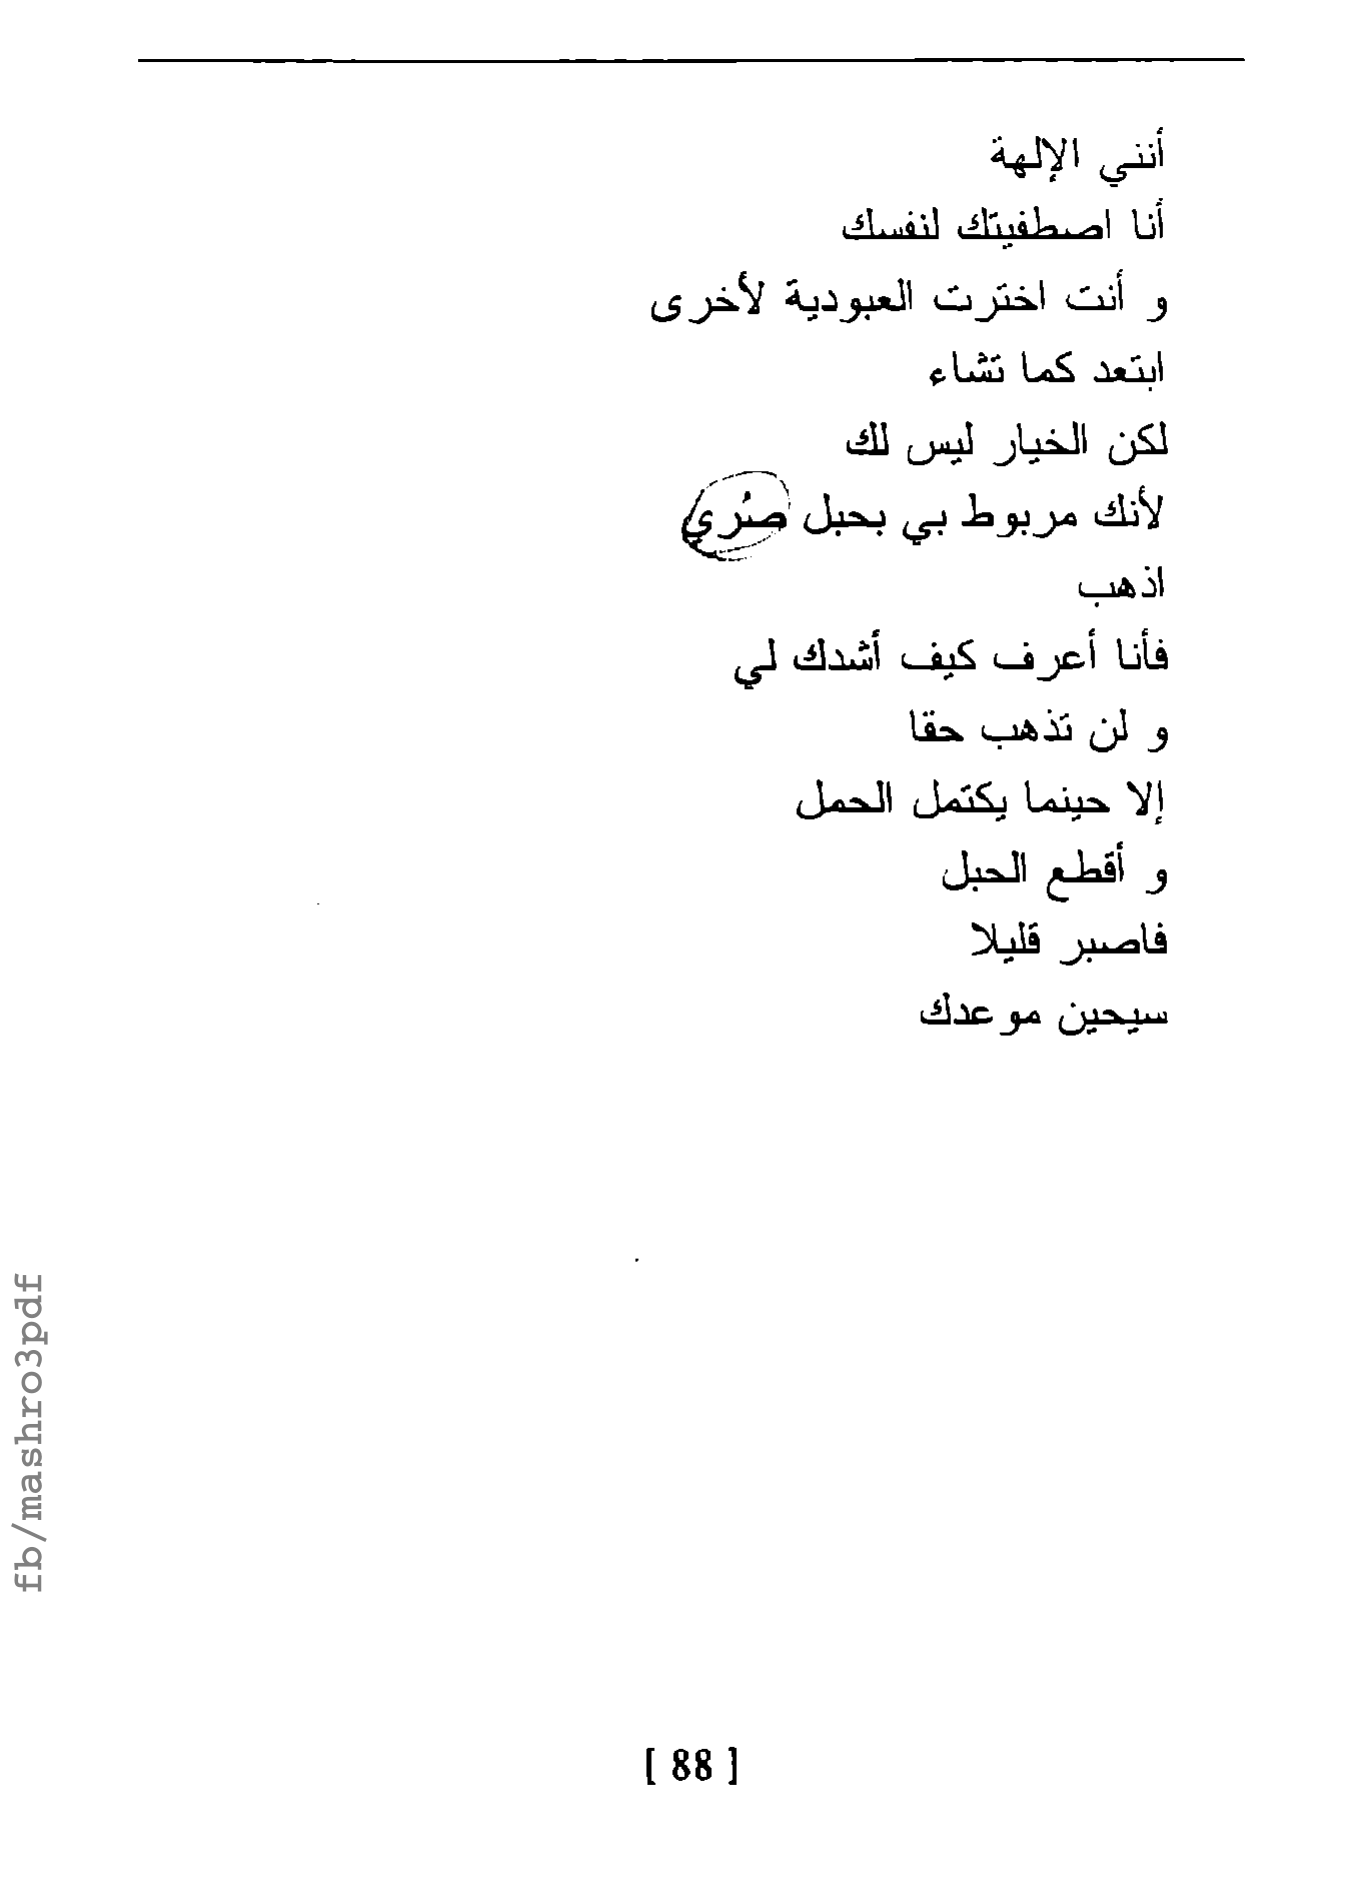 أنني الإلهة
أنا اصطفيتك لنفسك
و أنت اخترت العبودية لأخرى
ابتعد كما تشاء
لكن الخيار ليس لك
لأنك مربوط بي بحبل صُري
اذهب
فأنا أعرف كيف أشدك لي
و لن تذهب حقا
إلا حينما يكتمل الحمل
و أقطع الحبل
فاصبر قليلا
سيحين موعدك
fb/mashro3pdf
[ 88 ]